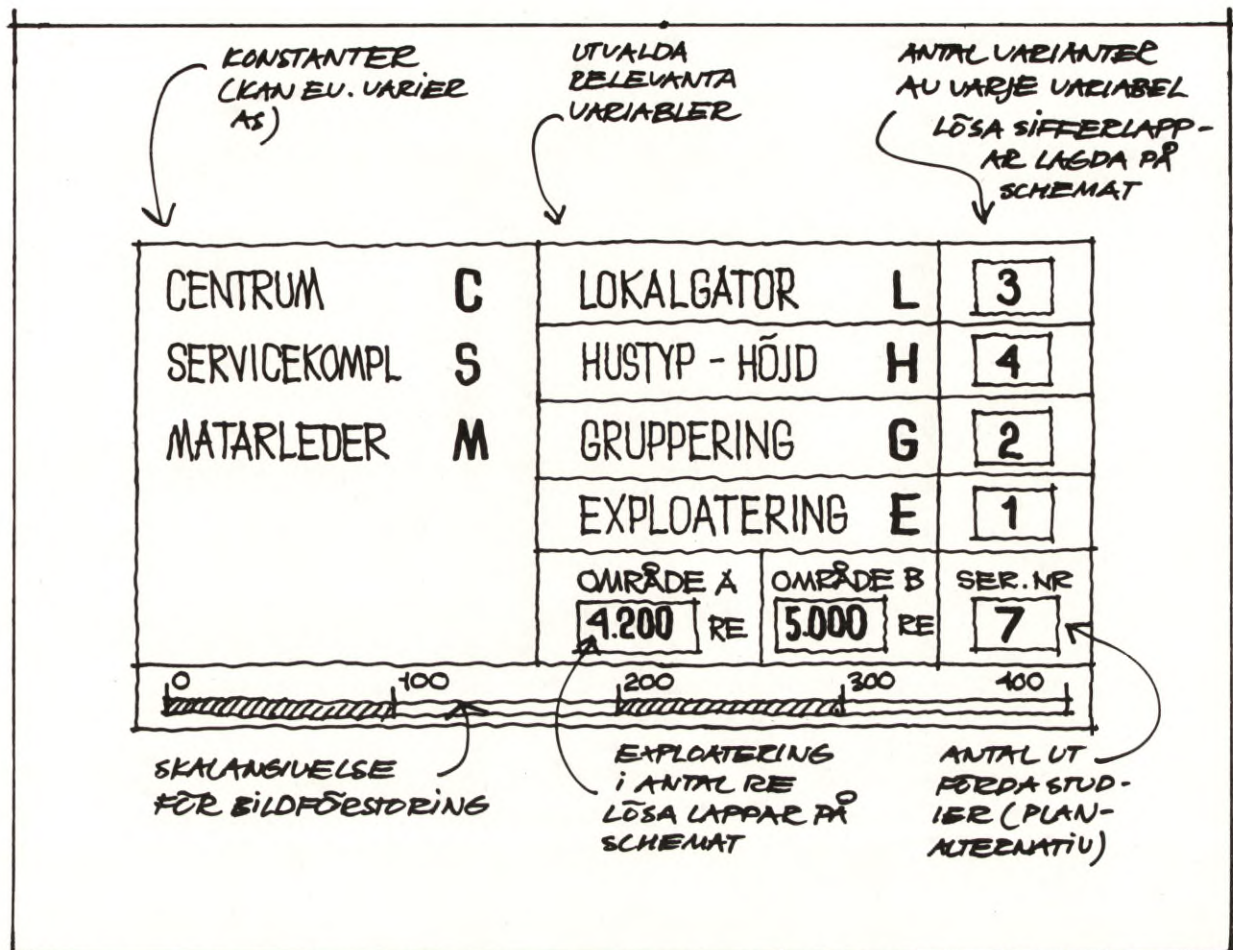 KONSTANTER
(KAN EV. VARIER
AS)
UTVALDA
RELEVANTA
VARIABLER
ANTAL VARIANTER
AV VARJE VARIABEL
LÖSA SIFFERLAPP-
AR LAGDA PÅ
SCHEMAT
CENTRUM C
SERVICEKOMPL S
MATARLEDER M
LOKALGATOR L 3
HUSTYP - HÖJD H 4
GRUPPERING G 2
EXPLOATERING E 1
OMRÅDE A
4.200 RE
OMRÅDE B
5.000 RE
SER. NR
7
0 100 200 300 400
SKALANGIVELSE
FÖR BILDFÖRSTORING
EXPLOATERING
i ANTAL RE
LÖSA LAPPAR PÅ
SCHEMAT
ANTAL UT
FÖRDA STUD-
IER (PLAN-
ALTERNATIV)